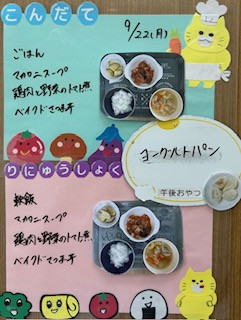 こんだて
9/22(月)
ごはん
マカロニスープ
鶏肉と野菜のトマト煮
ベイクドさつま芋
りにゅうしょく
ヨーグルトパン
午後おやつ
軟飯
マカロニスープ
鶏肉と野菜のトマト煮
ベイクドさつま芋